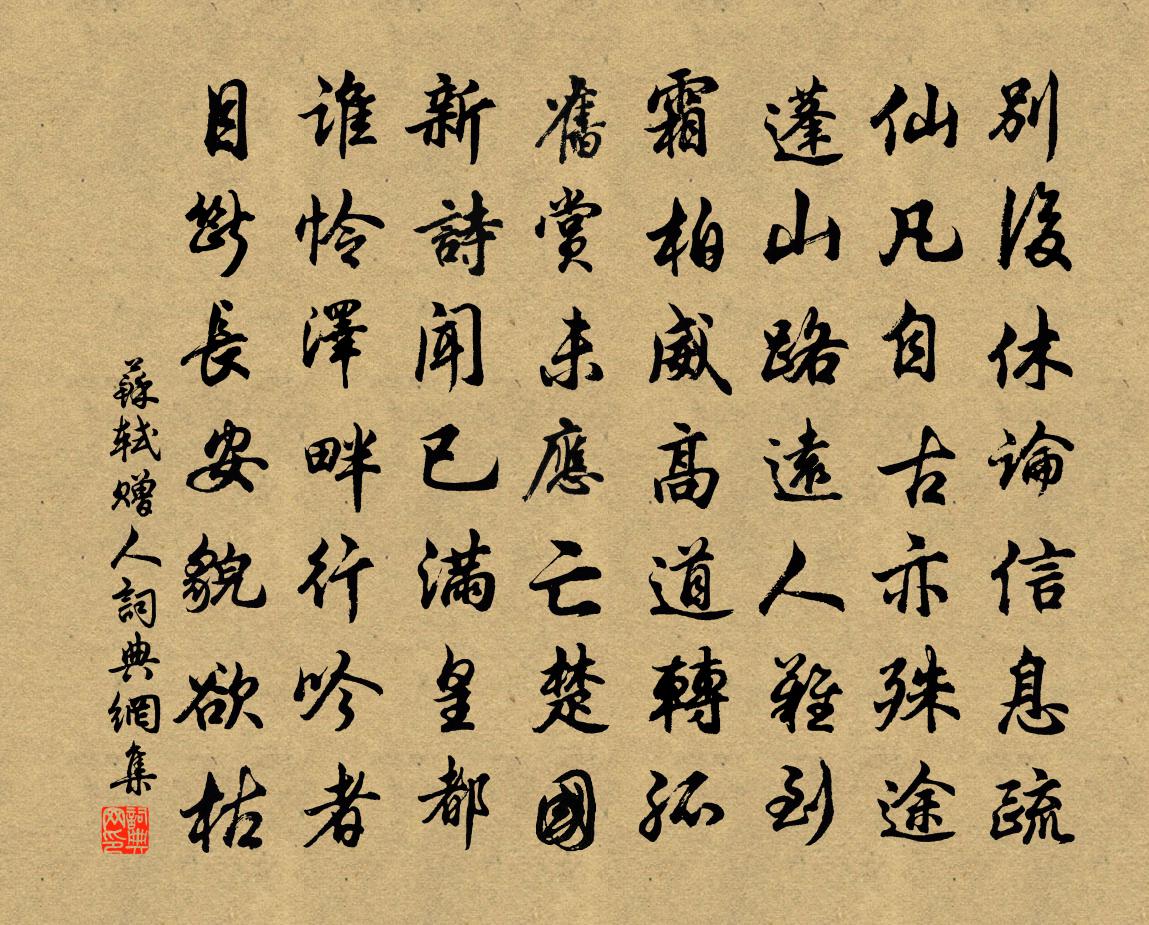 別後休論信息疏
仙凡自古亦殊途
蓬山路遠人難到
霜柏威高道轉孤
舊賞未應亡楚國
新詩聞已滿皇都
誰憐澤畔行吟者
目斷長安貌欲枯
蘇軾贈人詞典網集
詞典网印